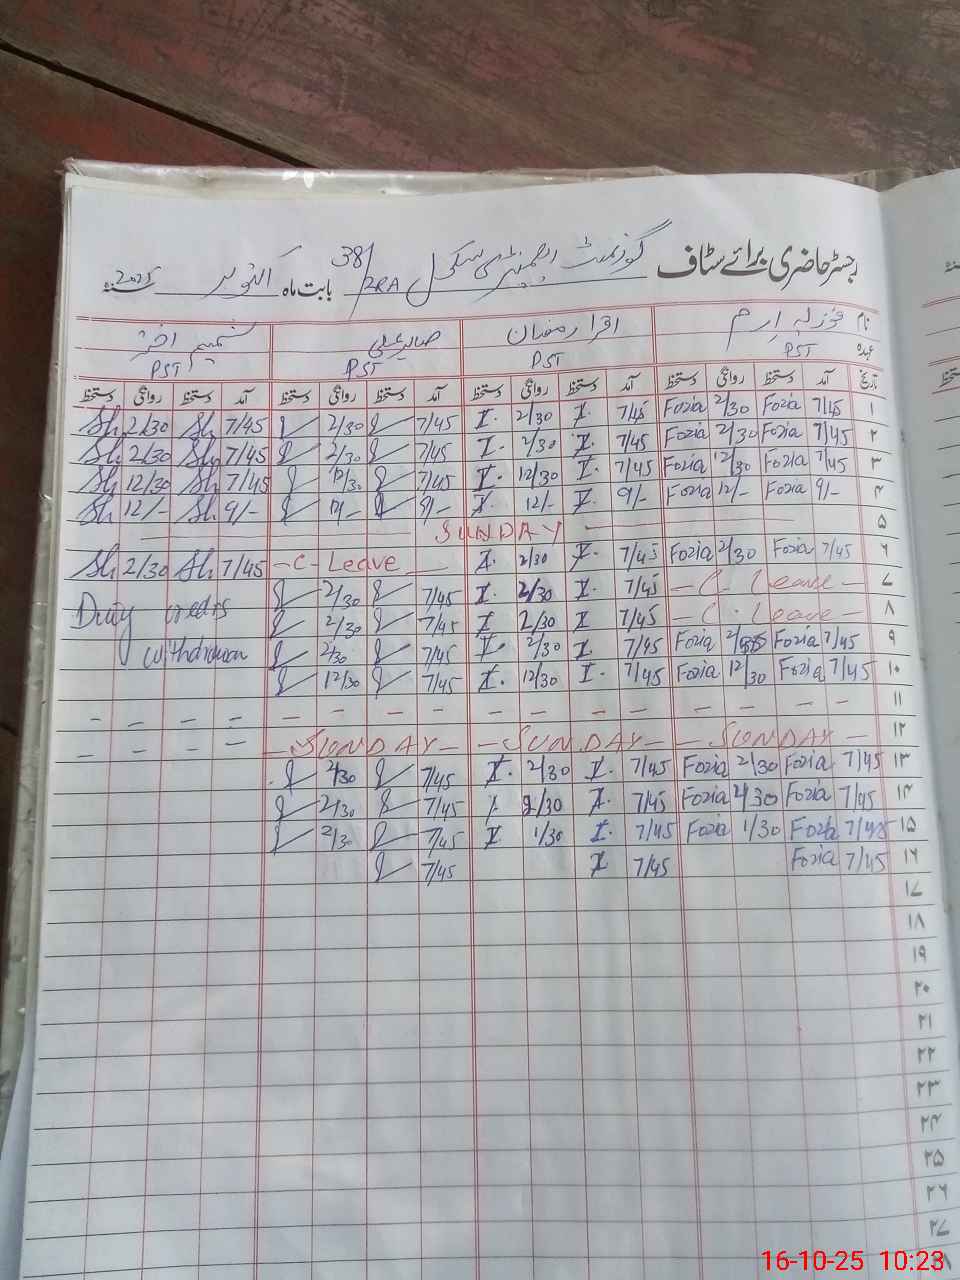 رجسٹر حاضری برائے سٹاف گورنمنٹ سکول 38/2RA بابت ماہ اکتوبر 2025
نام فوزیہ ارم اقرا رمضان صابر علی شمیم اختر
عہدہ PST PST PST PST
تاریخ آمد دستخط روانگی دستخط آمد دستخط روانگی دستخط آمد دستخط روانگی دستخط آمد دستخط روانگی دستخط
۱ 7/45 Fozia 2/30 Fozia 7/45 I. 2/30 I. 7/45 2/30 7/45 Sh 2/30 Sh
۲ 7/45 Fozia 2/30 Fozia 7/45 I. 2/30 I. 7/45 2/30 7/45 Sh 2/30 Sh
۳ 7/45 Fozia 12/30 Fozia 7/45 I. 12/30 I. 7/45 12/30 7/45 Sh 12/30 Sh
۴ 9/- Fozia 12/- Fozia 9/- I. 12/- I. 9/- 12/- 9/- Sh 12/- Sh
۵ SUNDAY
۶ 7/45 Fozia 2/30 Fozia 7/45 I. 2/30 I. - C - Leave 7/45 Sh 2/30 Sh
۷ - C. Leave - 7/45 I 2/30 I. 7/45 2/30 Duty
۸ - C. Leave - 7/45 I 2/30 I 7/45 2/30
۹ 7/45 Fozia Fozia 7/45 I 2/30 I 7/45 2/30 withdrawn
۱۰ 7/45 Fozia 12/30 Fozia 7/45 I. 12/30 I. 7/45 12/30
۱۱ - - - - - - - - - - - - - - - -
۱۲ - SUNDAY - - SUNDAY - - SUNDAY - - - - -
۱۳ 7/45 Fozia 2/30 Fozia 7/45 I. 2/30 I. 7/45 2/30
۱۴ 7/45 Fozia 2/30 Fozia 7/45 I. 2/30 I 7/45 2/30
۱۵ 7/45 Fozia 1/30 Fozia 7/45 I. 1/30 I 7/45 2/30
۱۶ 7/45 Fozia 7/45 I 7/45
۱۷
۱۸
۱۹
۲۰
۲۱
۲۲
۲۳
۲۴
۲۵
۲۶
۲۷
16-10-25 10:23